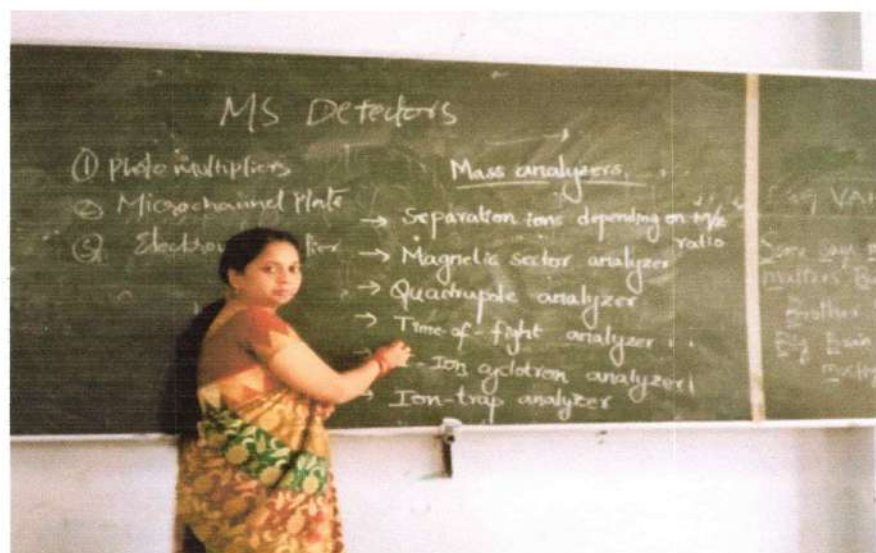 MS Detectors
① Photo multipliers
② Microchannel Plate
③
Mass analyzers.
→ Separation ions depending on M/z
ratio
→ Magnetic sector analyzer
→ Quadrupole analyzer
→ Time-of-fight analyzer
- Ion cyclotron analyzer
→ Ion-trap analyzer
Some say
matters
Brother
Big Brain